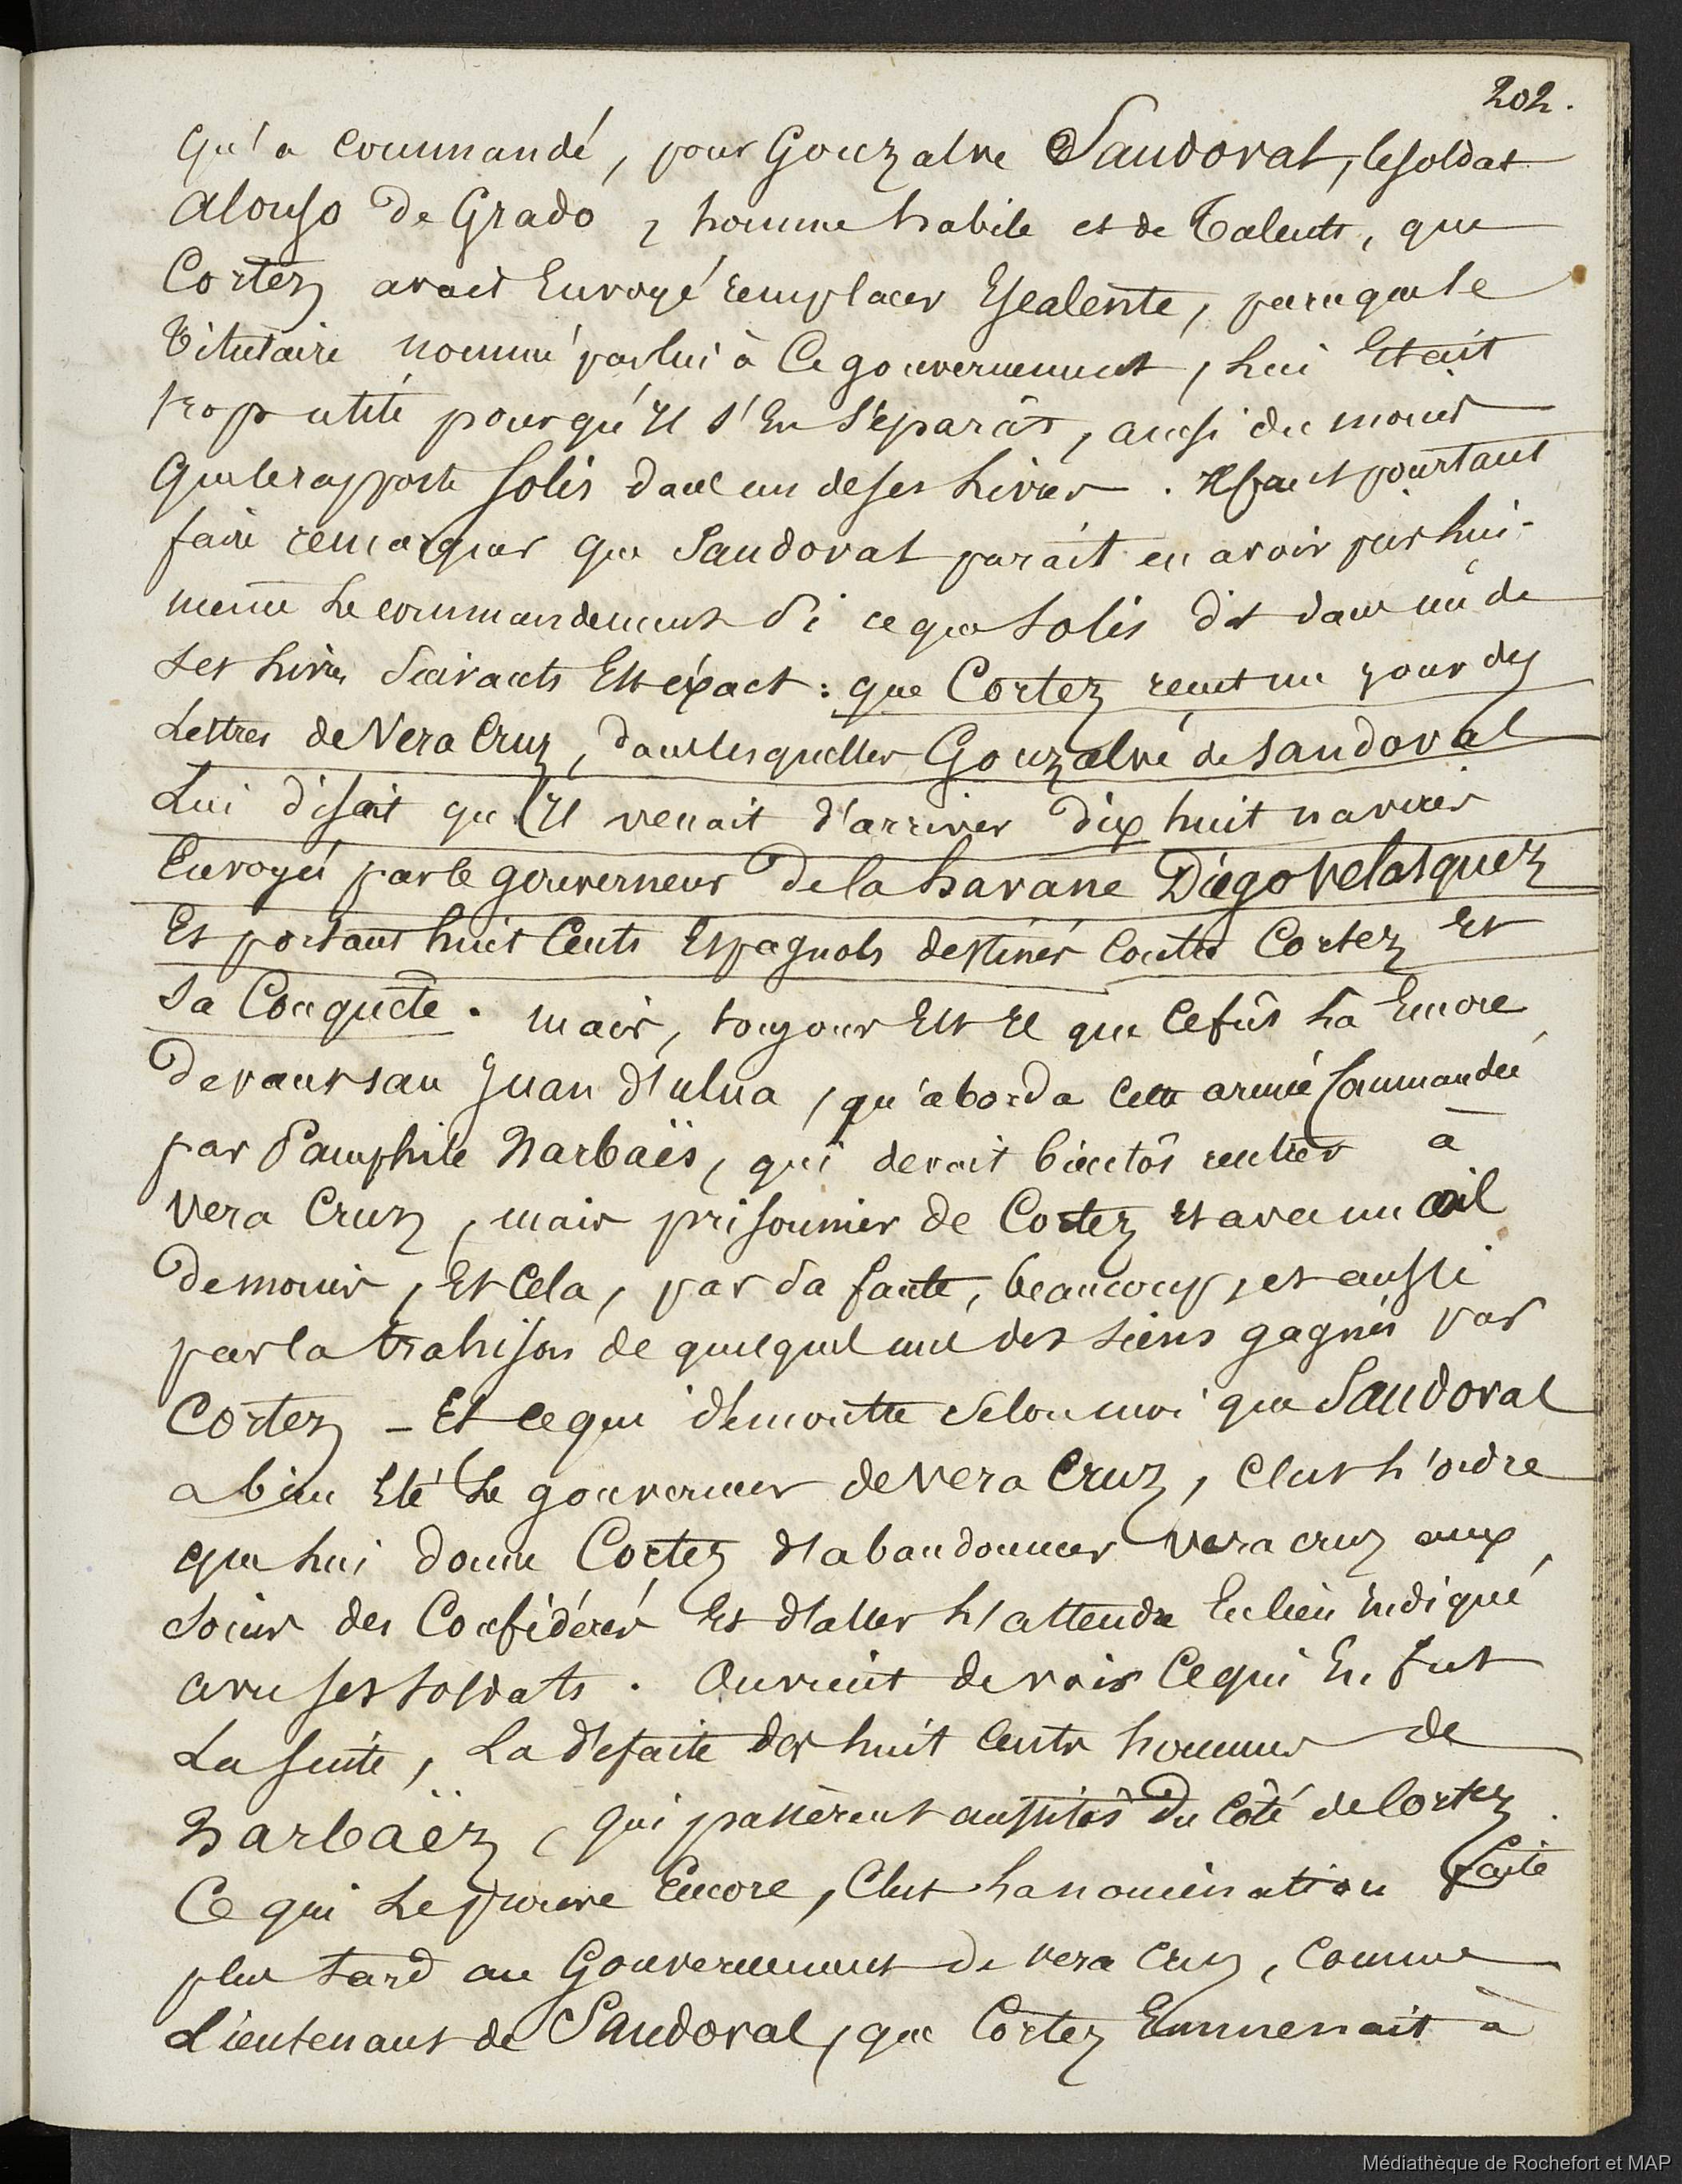 202.
qu'a commandé, pour Gonzalve Sandoval, le soldat
Alonso de Grado, homme habile et de talents, que
Cortez avait Envoyé remplacer Escalente, parceque le
titulaire nommé par lui à Ce gouvernement, lui Etait
trop utile pour qu'il s'En séparât, ainsi du moins
que le rapporte Solis dans un de ses Livres. Il faut pourtant
faire remarquer que Sandoval parait en avoir pris lui-
même Le commandement Si ce que Solis dit dans un de
ses Livres Suivants Est éxact : que Cortez reçut un jour des
Lettres de Vera Cruz, dans lesquelles Gonzalve de Sandoval
Lui disait qu'Il venait d'arriver dix huit navires
Envoyés par le gouverneur de la havane Diego Velasquez
Et portant huit Cents Espagnols destinés Contre Cortez Et
Sa Conquete. mais, toujours Est Il que Ce fût Là Encore
devant san Juan d'ulua, qu'aborda Cette armée Commandée
par Pamphile Narbaës, qui devait bientôt rentrer à
Vera Cruz, mais prisonnier de Cortez Et avec un œil
de moins, Et Cela, par sa faute, beaucoup, et aussi
par la trahison de quelques uns des siens gagnés par
Cortez - Et ce qui démontre Selon moi que Sandoval
a bien Eté Le gouverneur de Vera Cruz, C'est L'ordre
que Lui donna Cortez d'abandonner Vera cruz aux
soins des Confédérés Et d'aller L'attendre En lieu indiqué
avec ses soldats. On vient de voir Ce qui En fut
La suite, La défaite des huit Cents hommes de
Narbaëz, qui passèrent aussitôt du Côté de Cortez.
Ce qui Le prouve Encore, C'est La nomination faite
plus tard au Gouvernement de Vera Cruz, Comme
Lieutenant de Sandoval, que Cortez Emmenait à
Médiathèque de Rochefort et MAP